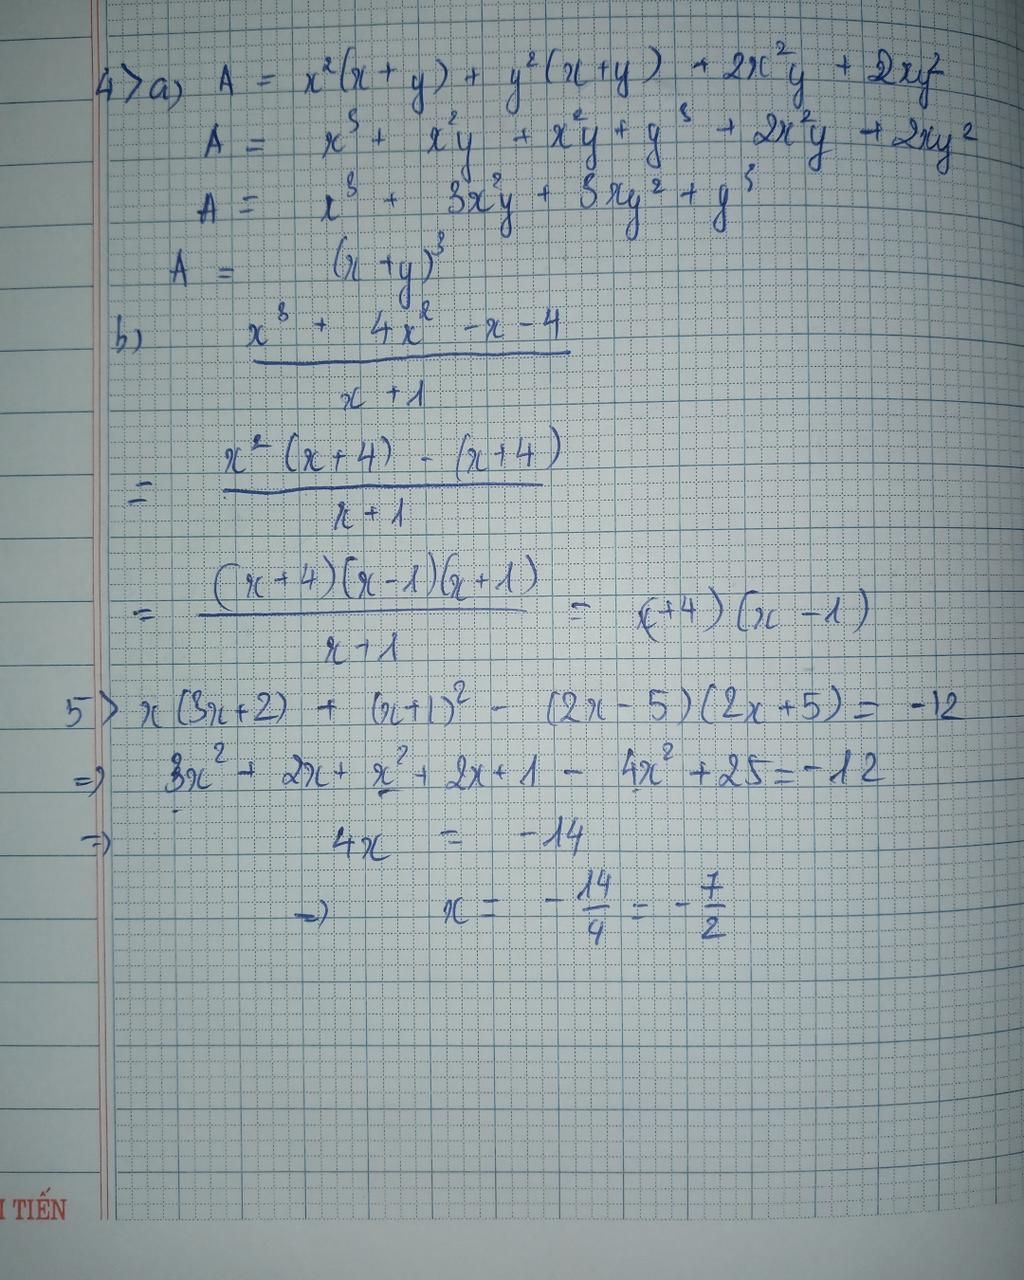 4> a) A = x²(x + y) + y²(x + y) + 2x²y + 2xy²
A = x³ + x²y + x²y + y³ + 2x²y + 2xy²
A = x³ + 3x²y + 3xy² + y³
A = (x + y)³
b) x³ + 4x² - x - 4
x + 1
= x² (x + 4) - (x + 4)
x + 1
= (x + 4)(x - 1)(x + 1) = (x + 4)(x - 1)
x + 1
5> x(3x + 2) + (x + 1)² - (2x - 5)(2x + 5) = -12
=> 3x² + 2x + x² + 2x + 1 - 4x² + 25 = -12
=> 4x = -14
=> x = - 14/4 = - 7/2
TIẾN